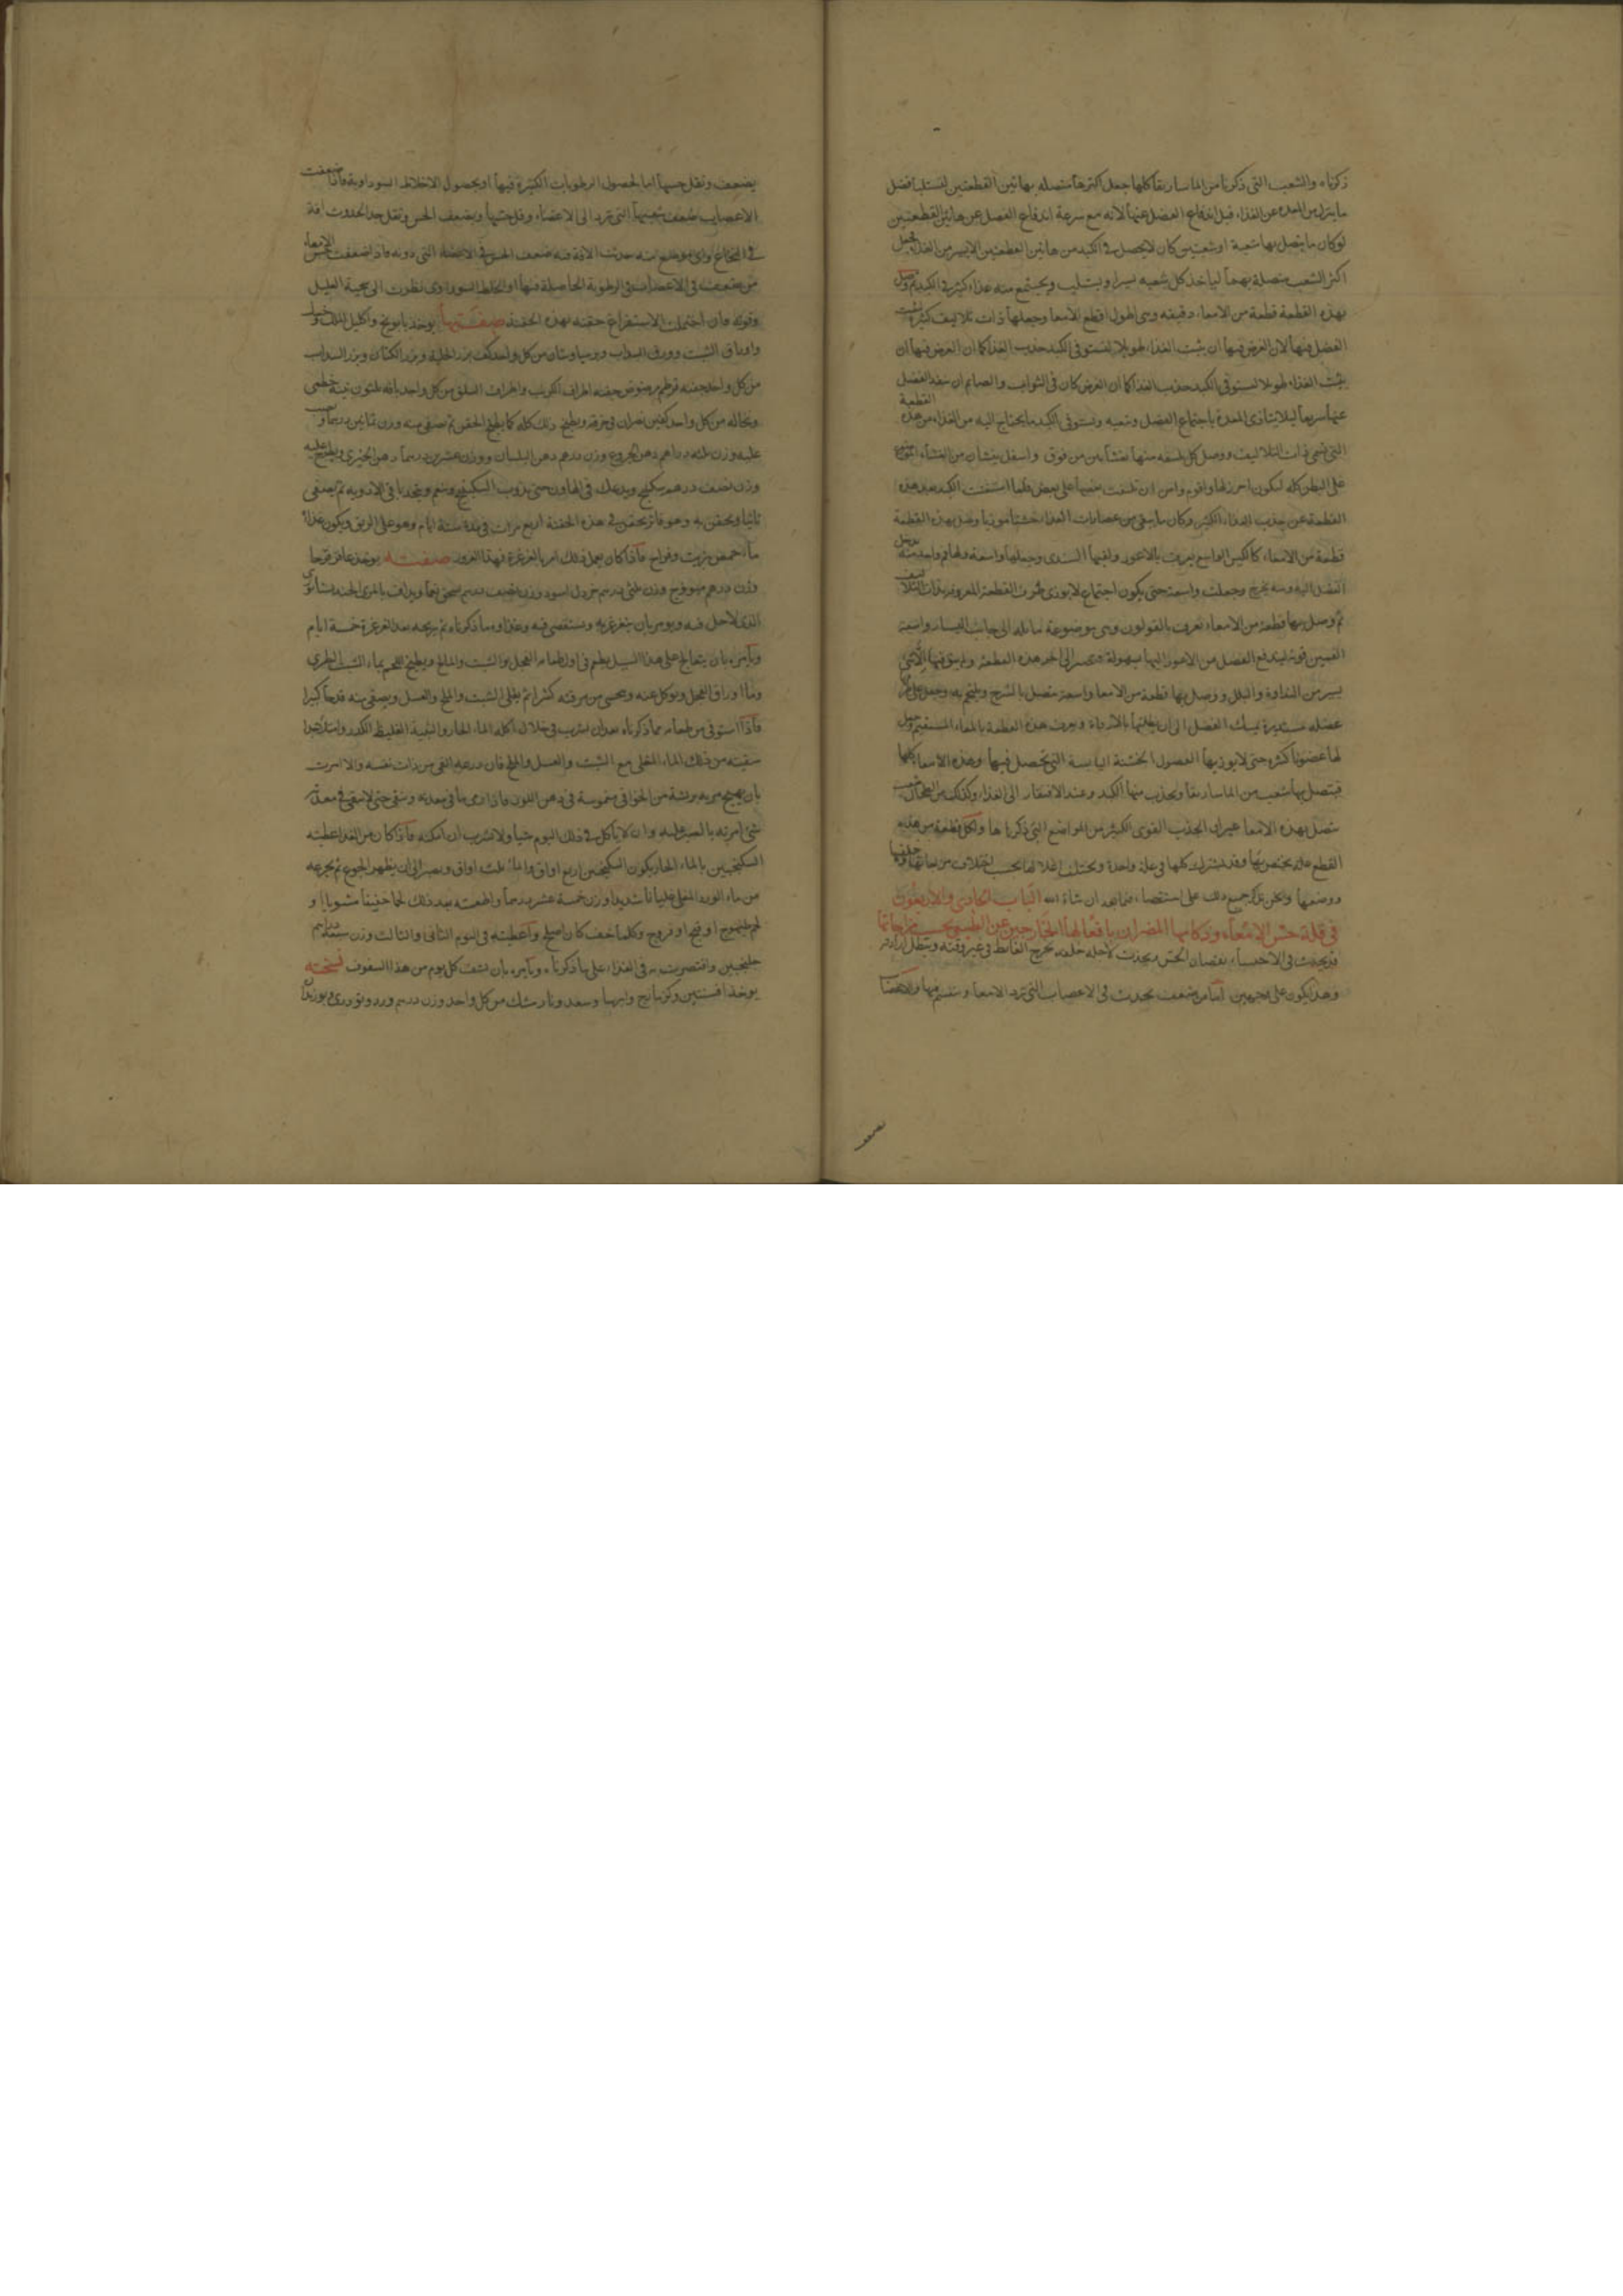 ذكرناه والشعب التى ذكرنا من الماساريقا كلها جعل اكثرها متصله بهاتين القطعتين لتستلب افضل
ما ينزل من المعده من الغذاء قبل اندفاع الفضل عنها لانه مع سرعة اندفاع الفضل عن هاتين القطعتين
لو كان ما يتصل بها شعبة او شعبتين كان لا يحصل فى الكبد من هاتين القطعتين الا اليسير من الغذا فجعل
اكثر الشعب متصلة بهما لياخذ كل شعبه يسيرا ويستلب ويجتمع منه غذاء كثير فى الكبد ثم وصل
بهذه القطعة قطعة من الامعاء دقيقه وهى اطول اقطع الامعا وجعلها ذات تلافيف كثيرة ليثبت
الفضل فيها لان الغرض فيها ان يثبت الغذاء طويلا لتستوفى الكبد جذب الغذا كما ان الغرض فيها ان
يثبت الغذاء طويلا لتستوفى الكبد جذب الغذا كما ان الغرض كان فى البواب والصايم ان ينفذ الفضل
عنها سريعا ليلا يتاذى المعدة باجتماع الفضل وتتعبه وتستوفى الكبد ما يحتاج اليه من الغذاء من هذه القطعة
التى تسمى ذات التلافيف ووصل كل تلفيفه منها بغشاء من فوق واسفل ينشان من الغشاء الموضوع
على البطن كله ليكون احرز لها واقوم وامن ان تلتف بعضها على بعض فلما استغنت الكبد بعد هذه
القطعة عن جذب الغذاء الكثير وكان ما يبقى من عصارات الغذاء خشنا موذيا وصل بهذه القطعة
قطعة من الامعاء كالكيس الواسع يعرف بالاعور ولقبها السندى وجعلها واسعة ولها فم واحد منه يدخل
الفضل اليه ومنه يخرج وجعلت واسعة حتى يكون اجتماع لا يوذى طرف القطعة المعروفة بذات التلافيف
ثم وصل بها قطعة من الامعاء تعرف بالقولون وهى موضوعة مايله الى جانب اليسار واسعة
الفم من فوق ليندفع الفضل من الاعور اليها بسهولة ويصير الى اخر هذه القطعة ولم يبق فيها الا شئ
يسير من النداوة والبلل ووصل بها قطعة من الامعا واسعة متصل بالشرج وملتحم به وجعل على
عضله مستديرة تمسك الفضل الى ان يطلقها بالارادة ويعرف هذه القطعة بالمعاء المستقيم وجعل
لها غضونا كثيرة حتى لا يوذيها الفضول الخشنة اليابسة التى تحصل فيها وهذه الامعا كلها
فيتصل بها شعب من الماساريقا ويجذب منها الكبد وعند الافتقار الى الغذاء وكذلك من الطحال شعب
تتصل بهذه الامعا غير ان الجذب القوى الكثير من المواضع التى ذكرناها ولكل قطعة من هذه
القطع علة يختص بها وقد يشترك كلها فى علة واحدة ويختلف اعلالها بحسب اختلاف خلقتها
ووضعها ونحن نذكر جميع ذلك على استقصاء فيما بعد ان شاء الله الباب الحادى والاربعون
فى قلة حس الامعاء وذكائها المضران بافعالها الخارجين عن الطبيعى بحسب مزاجاتها
قد يحدث فى الاحشاء نقصان الحس ويحدث لاجله خلفه يخرج الغائط فى غير وقته ويبطل ارادته
وهذا يكون على وجهين اما من ضعف يحدث فى الاعصاب التى ترد الامعا وتنقسم فيها والاعضا
يضعف وتقل حسها اما لحصول الرطوبات الكثيرة فيها او بحصول الاخلاط السوداوية فاذا ضعفت
الاعصاب ضعف شعبها التى ترد الى الاعضاء وقل حسها ويضعف الحس وتقل جدا لحدوث افة
فى النخاع واى موضع منه حدثت الافة فيه ضعف الحس فى الاعضاء التى دونه فاذا ضعفت حس الامعاء
من ضعف فى الاعصاب فى الرطوبة الحاصلة فيها او الخلط السوداوى نظرت الى سحنة العليل
وقوته فان احتملت الاستفراغ حقنته بهذه الحقنة صفتها يوخذ بابونج واكليل الملك
واوراق الشبت وورق السذاب من كل واحد كف بزر الحلبة وبزر الكتان وبزر السذاب
من كل واحد حفنه قرطم مرضوض حفنه اطراف الكرنب واطراف السلق من كل واحد باقه
ونخاله من كل واحد كفين يصران فى خرقة ويطبخ ذلك كله كما يطبخ الحقن ثم يصفى منه وزن ثمانين درهما ويصب
عليه وزن ثلثه دراهم دهن الخروع وزن درهم دهن البلسان ووزن عشرين درهما دهن الخيرى ويطرح عليه
وزن نصف درهم سكبينج ويدعك فى الهاون حتى يذوب السكبينج وينعم ويتحد بباقى الادوية ثم يصفى
ثانيا ويحقن به وهو فاتر يحقن فى هذه الحقنة اربع مرات فى مدة ستة ايام وهو على الريق ويكون غذاؤه
ماء حمص بزيت وفراخ فاذا كان بعد ذلك امر بالغرغرة بهذا الغرور صفته يوخذ عاقر قرحا
وزن درهم ميويزج وزن ثلثى درهم خردل اسود وزن نصف درهم يسحق نعما ويداف بالمرى
الذى لا خل فيه ويومر بان يتغرغر به ويستقصى فيه وغذاؤه ما ذكرناه ثم يريحه بعد الغرغرة خمسة ايام
ويامره بان يتعالج على هذا السبيل يطعم فى اول طعامه الفجل والشبت والمالح ويطبخ اللحم بماء الشبت الطرى
وماء اوراق الفجل ويوكل عنه ويحسى من مرقته كثيرا ثم يغلى الشبت والملح والعسل ويصفى منه قدحا كبيرا
فاذا استوفى من طعامه مما ذكرناه بعد ان شرب فى خلال اكله الماء الحار والنبيذ الغليظ الكدر وامتلا جدا
سقيته من ذلك الماء المغلى مع الشبت والعسل والملح فان ذرعه القى من ذات نفسه والا امرت
بان يهيج مريه بريشة من الخوافى مغموسة فى دهن اللوز فاذا رمى ما فى معدته ونقى حتى لا يبقى فى معدته
شئ امرته بالصبر عليه وان لا ياكل فى ذلك اليوم شيا ولا يشرب ان امكنه فاذا كان من الغد اعطيته
السكنجبين بالماء الحار يكون السكنجبين اربع اواق والماء ثلث اواق ويصبر الى ان يظهر الجوع ثم يجرعه
من ماء الورد المغلى غليانا شديدا وزن خمسة عشر درهما واطعمته بعد ذلك لحما خفيفا مشويا او
لحم طيهوج او فبج او فروج وكلما خف كان اصلح واعطيته فى اليوم الثانى والثالث وزن سبعة دراهم
جلنجبين واقتصرت به فى الغذاء على ما ذكرناه ويامره بان يستف كل يوم من هذا السفوف نسخته
يوخذ افسنتين وكزمازج وابهل وسعد ونارمشك من كل واحد وزن درهم ورد وتودرى وبوزيدان